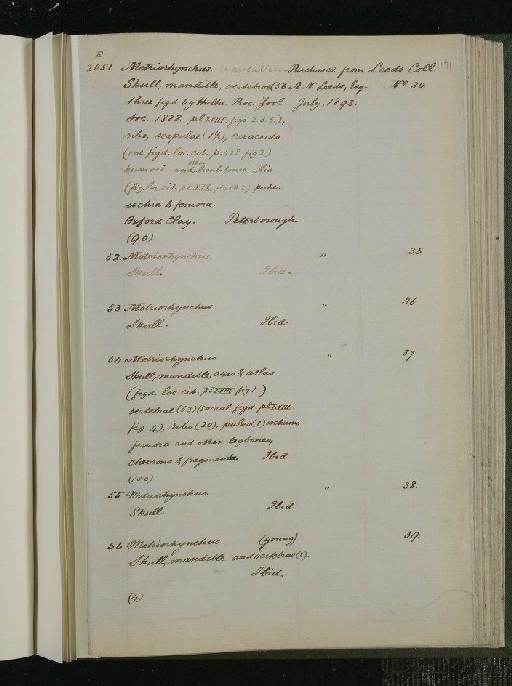 R
2051 Metriorhynchus Purchased from Leeds Coll 191
Skull, mandible, vertebrae (38 A. N. Leeds, Esq. No 34
three figd by Hulke Proc. Zool July, 1893.
Soc. 1888. pl. XVIII. figs 2.3.5.),
ribs, scapulae (1½), coracoids
(one figd. loc. cit. p. 428 fig 2)
humeri and other limb bones Ilia
(fig loc cit. pl XIX. fig ) pubes
ischia & femora.
Oxford Clay. Peterborough
(90)
52 Metriorhynchus " 35
Skull. Ibid.
53 Metriorhynchus " 36
Skull. Ibid
54 Metriorhynchus " 37
Skull, mandible, axis & atlas
(figd. loc cit. pl XVIII fig 1)
vertebrae (63) (sacral figd pl XVIII
fig 4), ribs (20), pubis (1) ischium
femora and other limb bones,
and fragments Ibid
(100)
55 Metriorhynchus " 38.
Skull Ibid
56 Metriorhynchus (young) 39.
Skull, mandible and vertebrae (2).
Ibid.
(4)